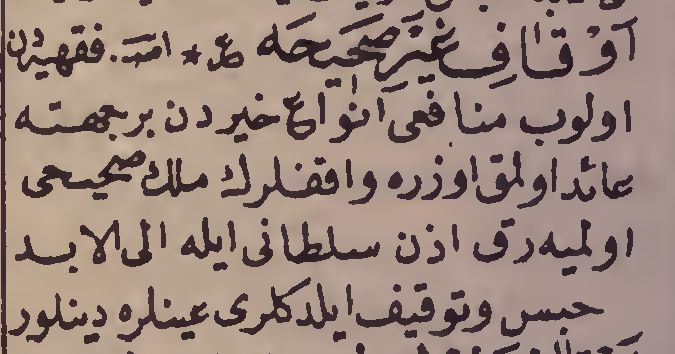 آوْقَافِ غَيْرِ صَحِيحَه ع * امت. فقهيدن
اولوب منافعى اَنواع خيردن بر جهته
عائد اولمق اوزره واقفلرك ملك صحيحى
اولميه رق اذن سلطانى ايله الى الابد
حبس وتوقيف ايلدكلرى عينلره دينلور